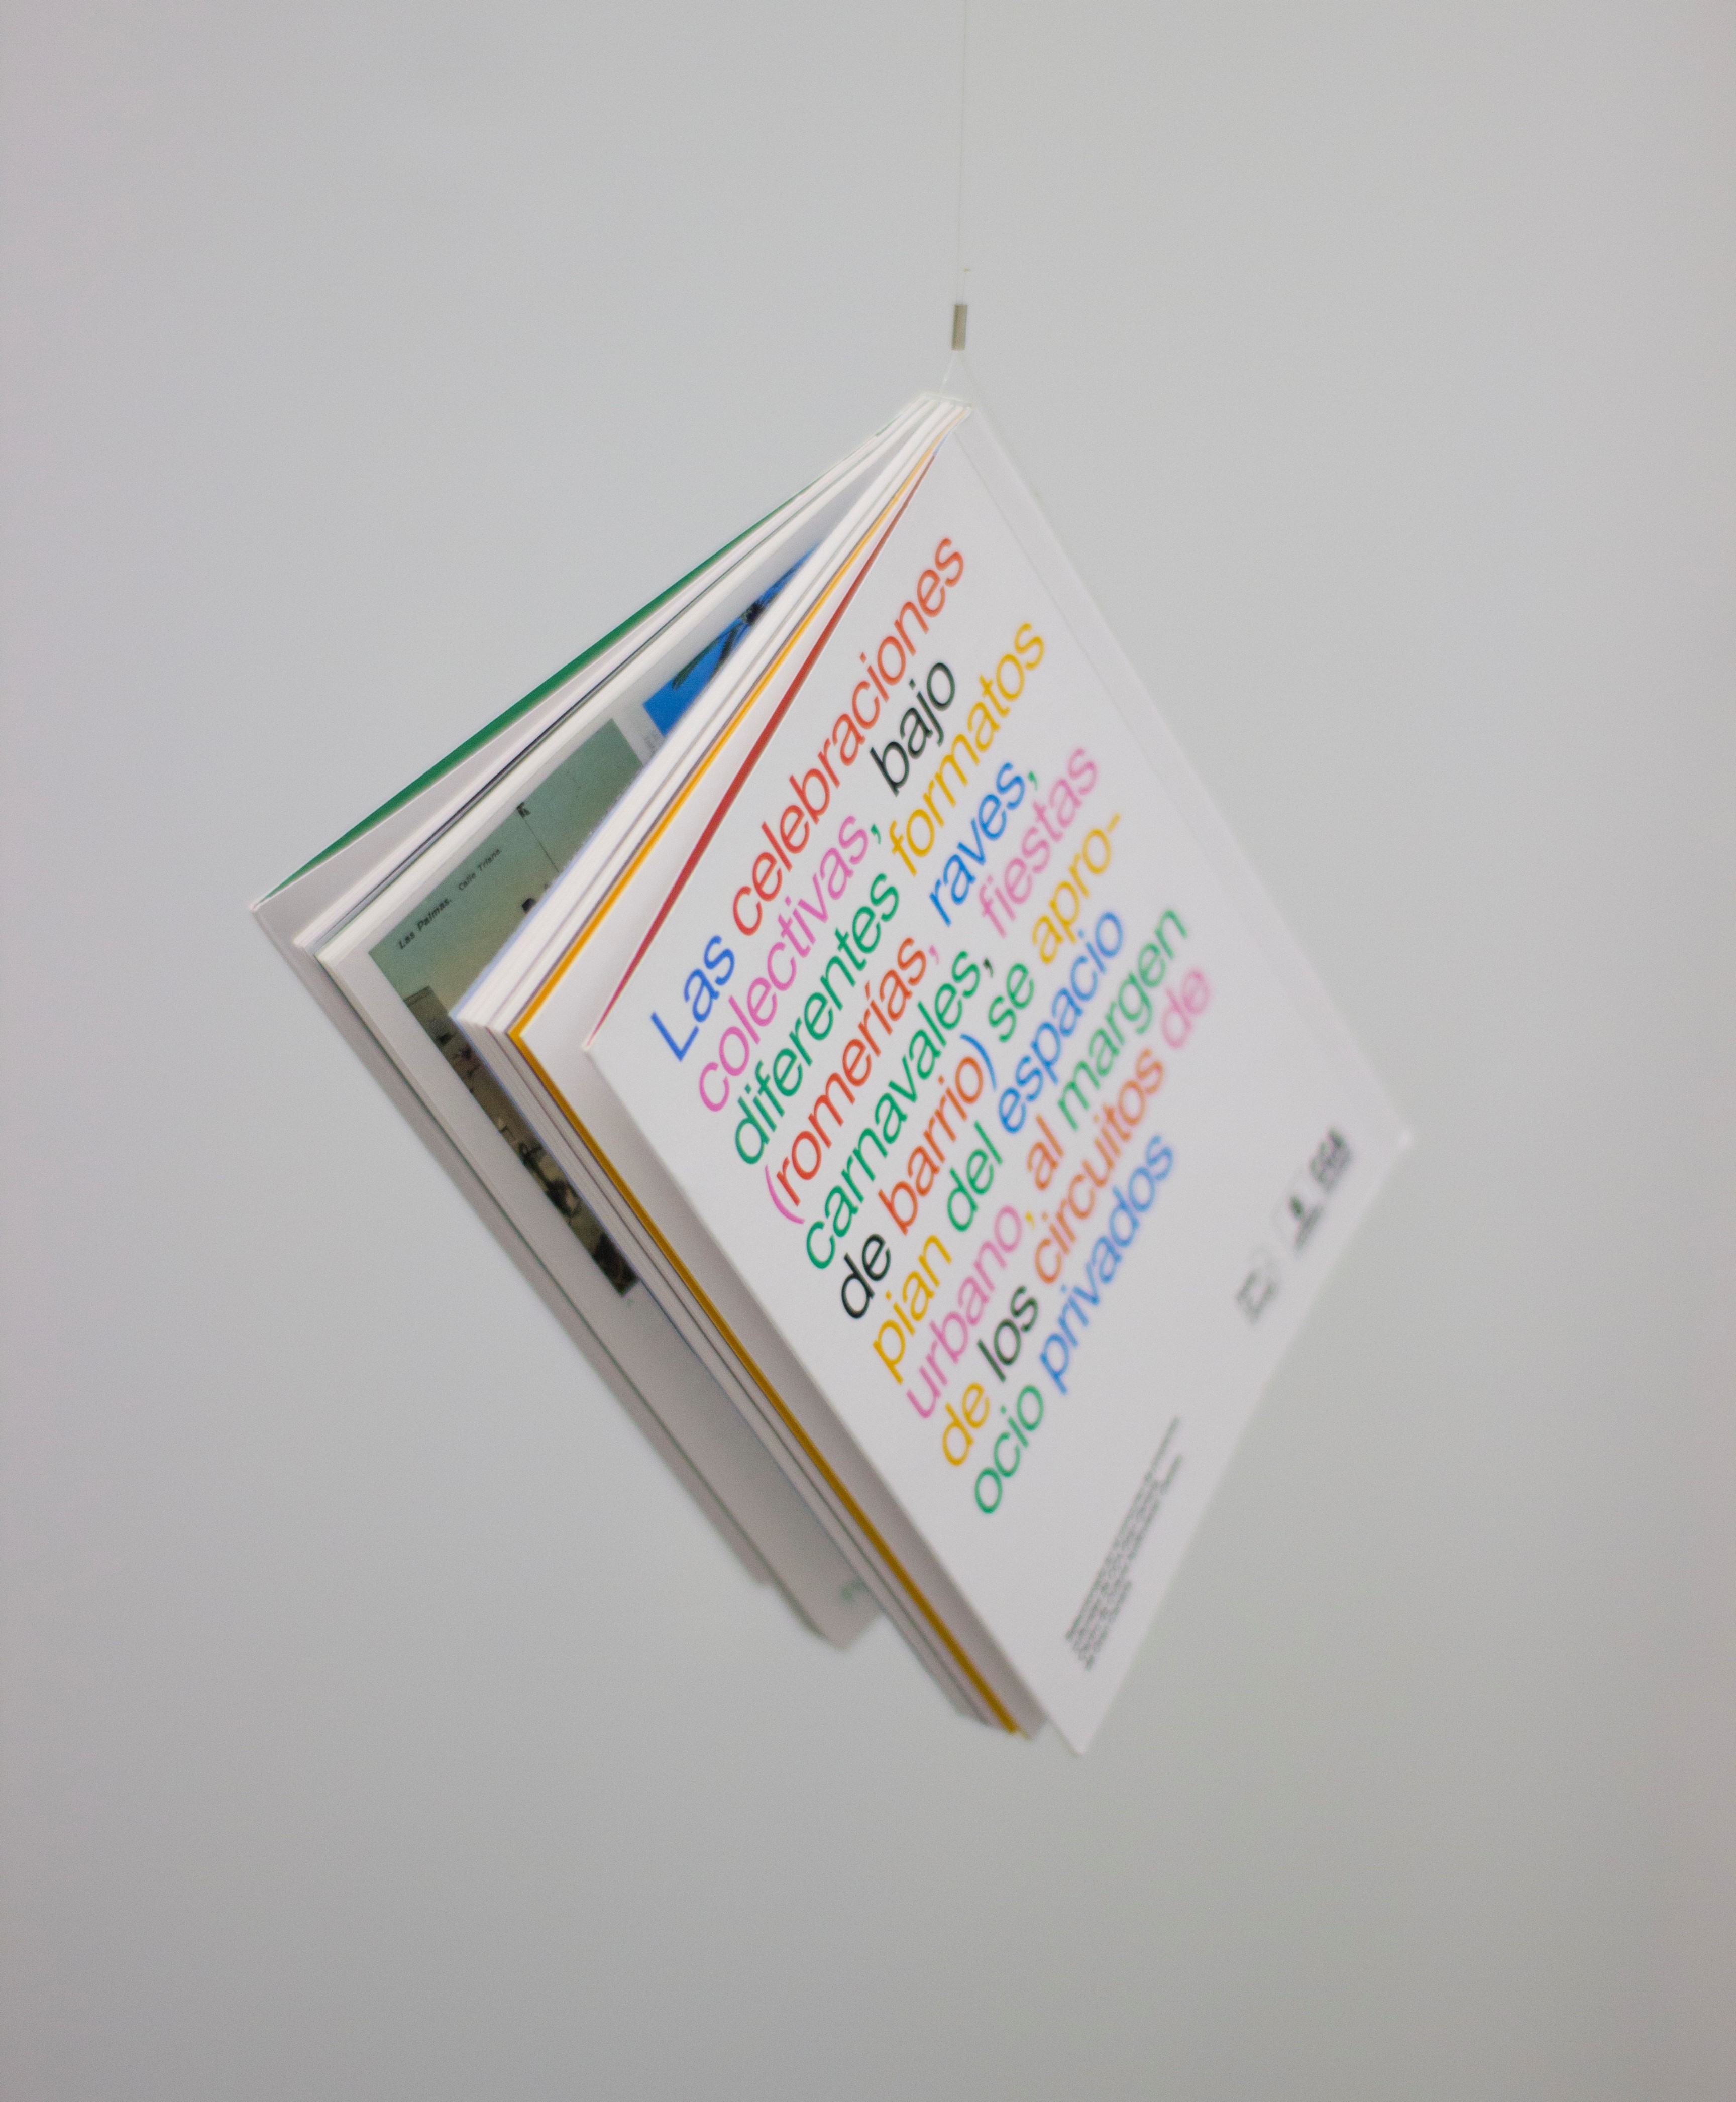 Las celebraciones
colectivas, bajo
diferentes formatos
(romerías, raves,
carnavales, fiestas
de barrio) se apro-
pian del espacio
urbano, al margen
de los circuitos de
ocio privados
Las Palmas. Calle Triana.